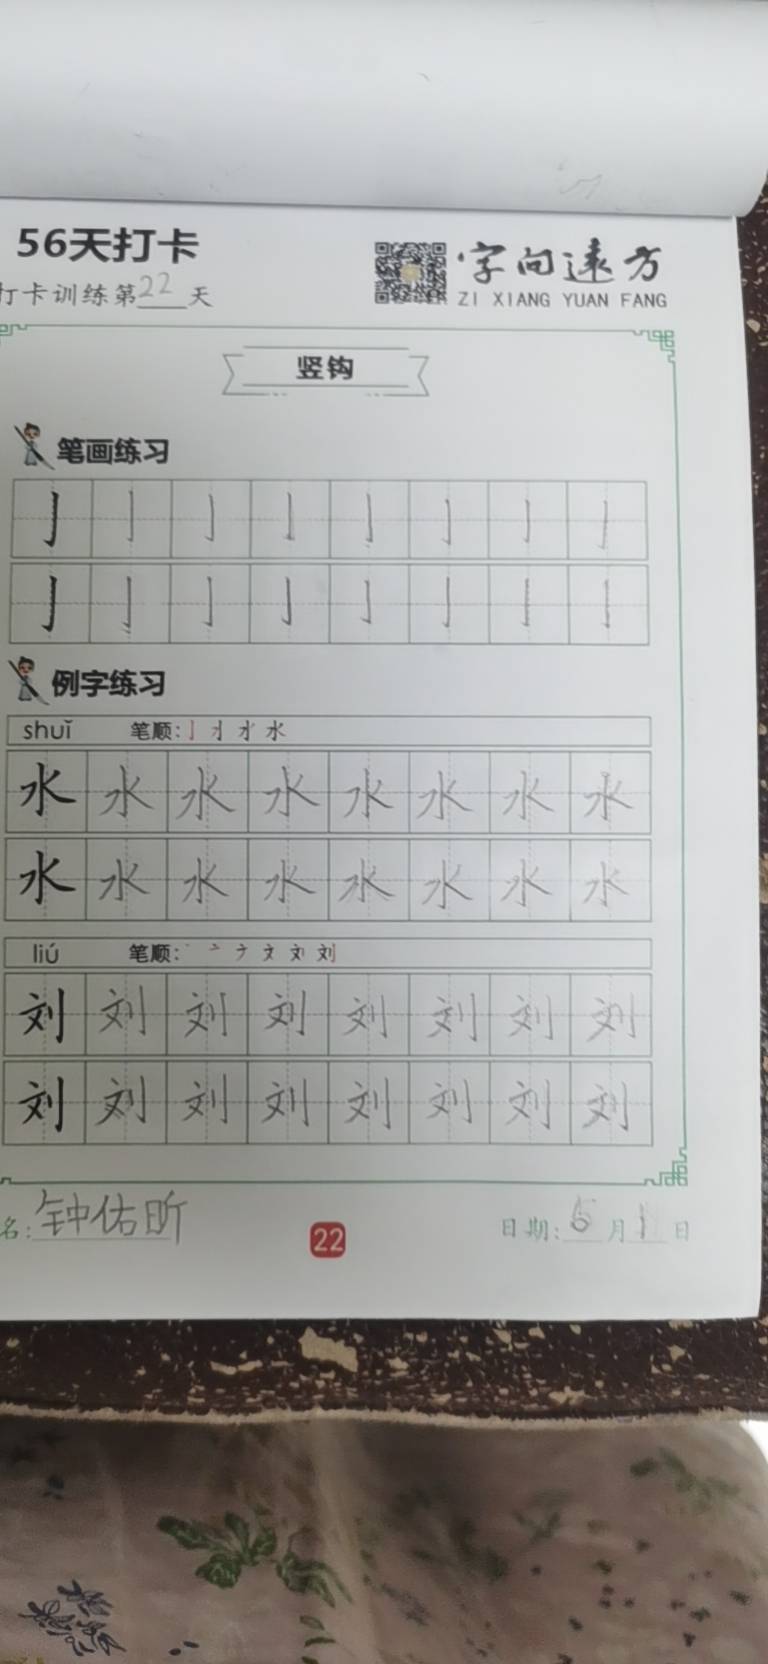 56天打卡
字向遠方
打卡训练第22天
ZI XIANG YUAN FANG
竖钩
笔画练习
亅 亅 亅 亅 亅 亅 亅 亅
亅 亅 亅 亅 亅 亅 亅 亅
例字练习
shuǐ 笔顺: 亅 水
水 水 水 水 水 水 水 水
水 水 水 水 水 水 水 水
liú 笔顺: 丶 亠 文 刘
刘 刘 刘 刘 刘 刘 刘 刘
刘 刘 刘 刘 刘 刘 刘 刘
名: 钟佑昕
22
日期: 6月1日